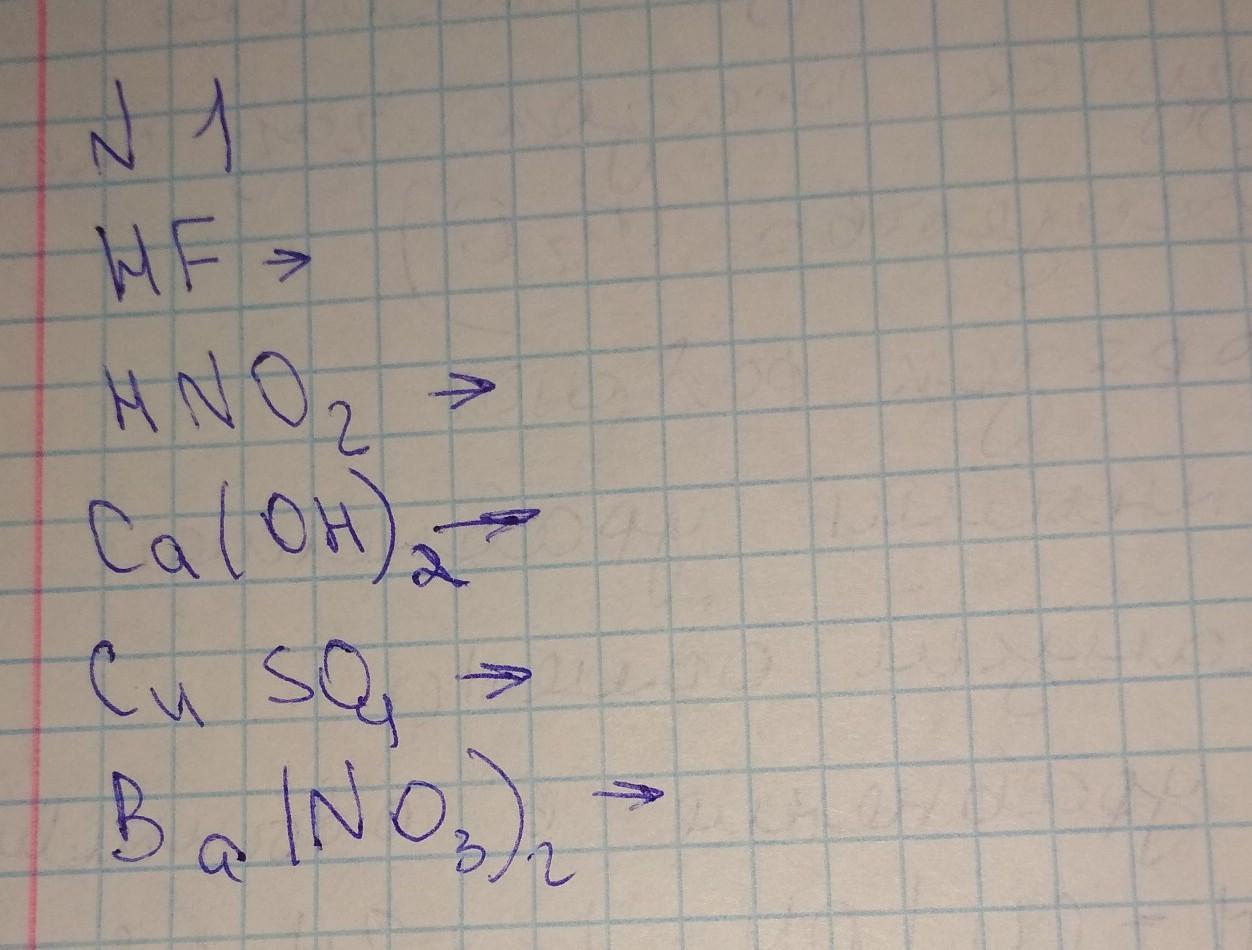 N 1
HF →
HNO₂ →
Ca(OH)₂ →
CuSO₄ →
Ba(NO₃)₂ →